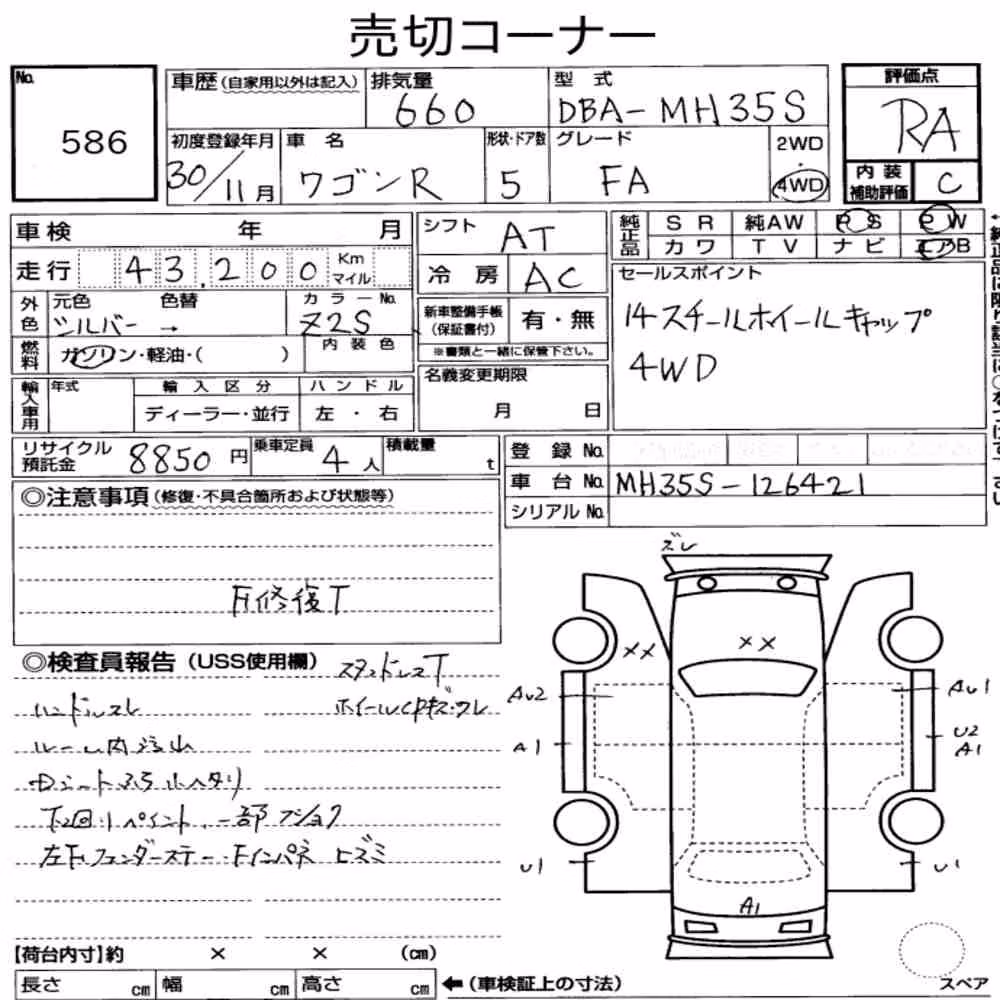 売切コーナー
No. 586
車歴(自家用以外は記入)
排気量 660
型式 DBA-MH35S
評価点 RA
初度登録年月 30/11月
車名 ワゴンR
形状・ドア数 5
グレード FA
2WD・4WD
内装補助評価 C
車検 年 月
シフト AT
純正品 SR 純AW PS PW
カワ TV ナビ エアB
走行 43,200 Km マイル
冷房 AC
セールスポイント
14スチールホイールキャップ
4WD
外色 元色 シルバー → 色替
カラーNo. Z2S
新車整備手帳(保証書付) 有・無
※書類と一緒に保管下さい。
燃料 ガソリン・軽油・( )
内装色
名義変更期限 月 日
輸入車用 年式 輸入区分 ハンドル
ディーラー・並行 左・右
リサイクル預託金 8850円
乗車定員 4人
積載量 t
登録No.
車台No. MH35S-126421
シリアルNo.
◎注意事項(修復・不具合箇所および状態等)
F修復T
◎検査員報告(USS使用欄)
スタッドレスT
ハンドルスレ
ホイールCPキズ・ワレ
ルーム内汚
左Fフェンダーステー・Fインパネ ヒズミ
ズレ
×× ××
AU2 AU1
A1 U2
A1
U1 U1
A1
【荷台内寸】約 × × (cm)
長さ cm 幅 cm 高さ cm ←(車検証上の寸法)
スペア